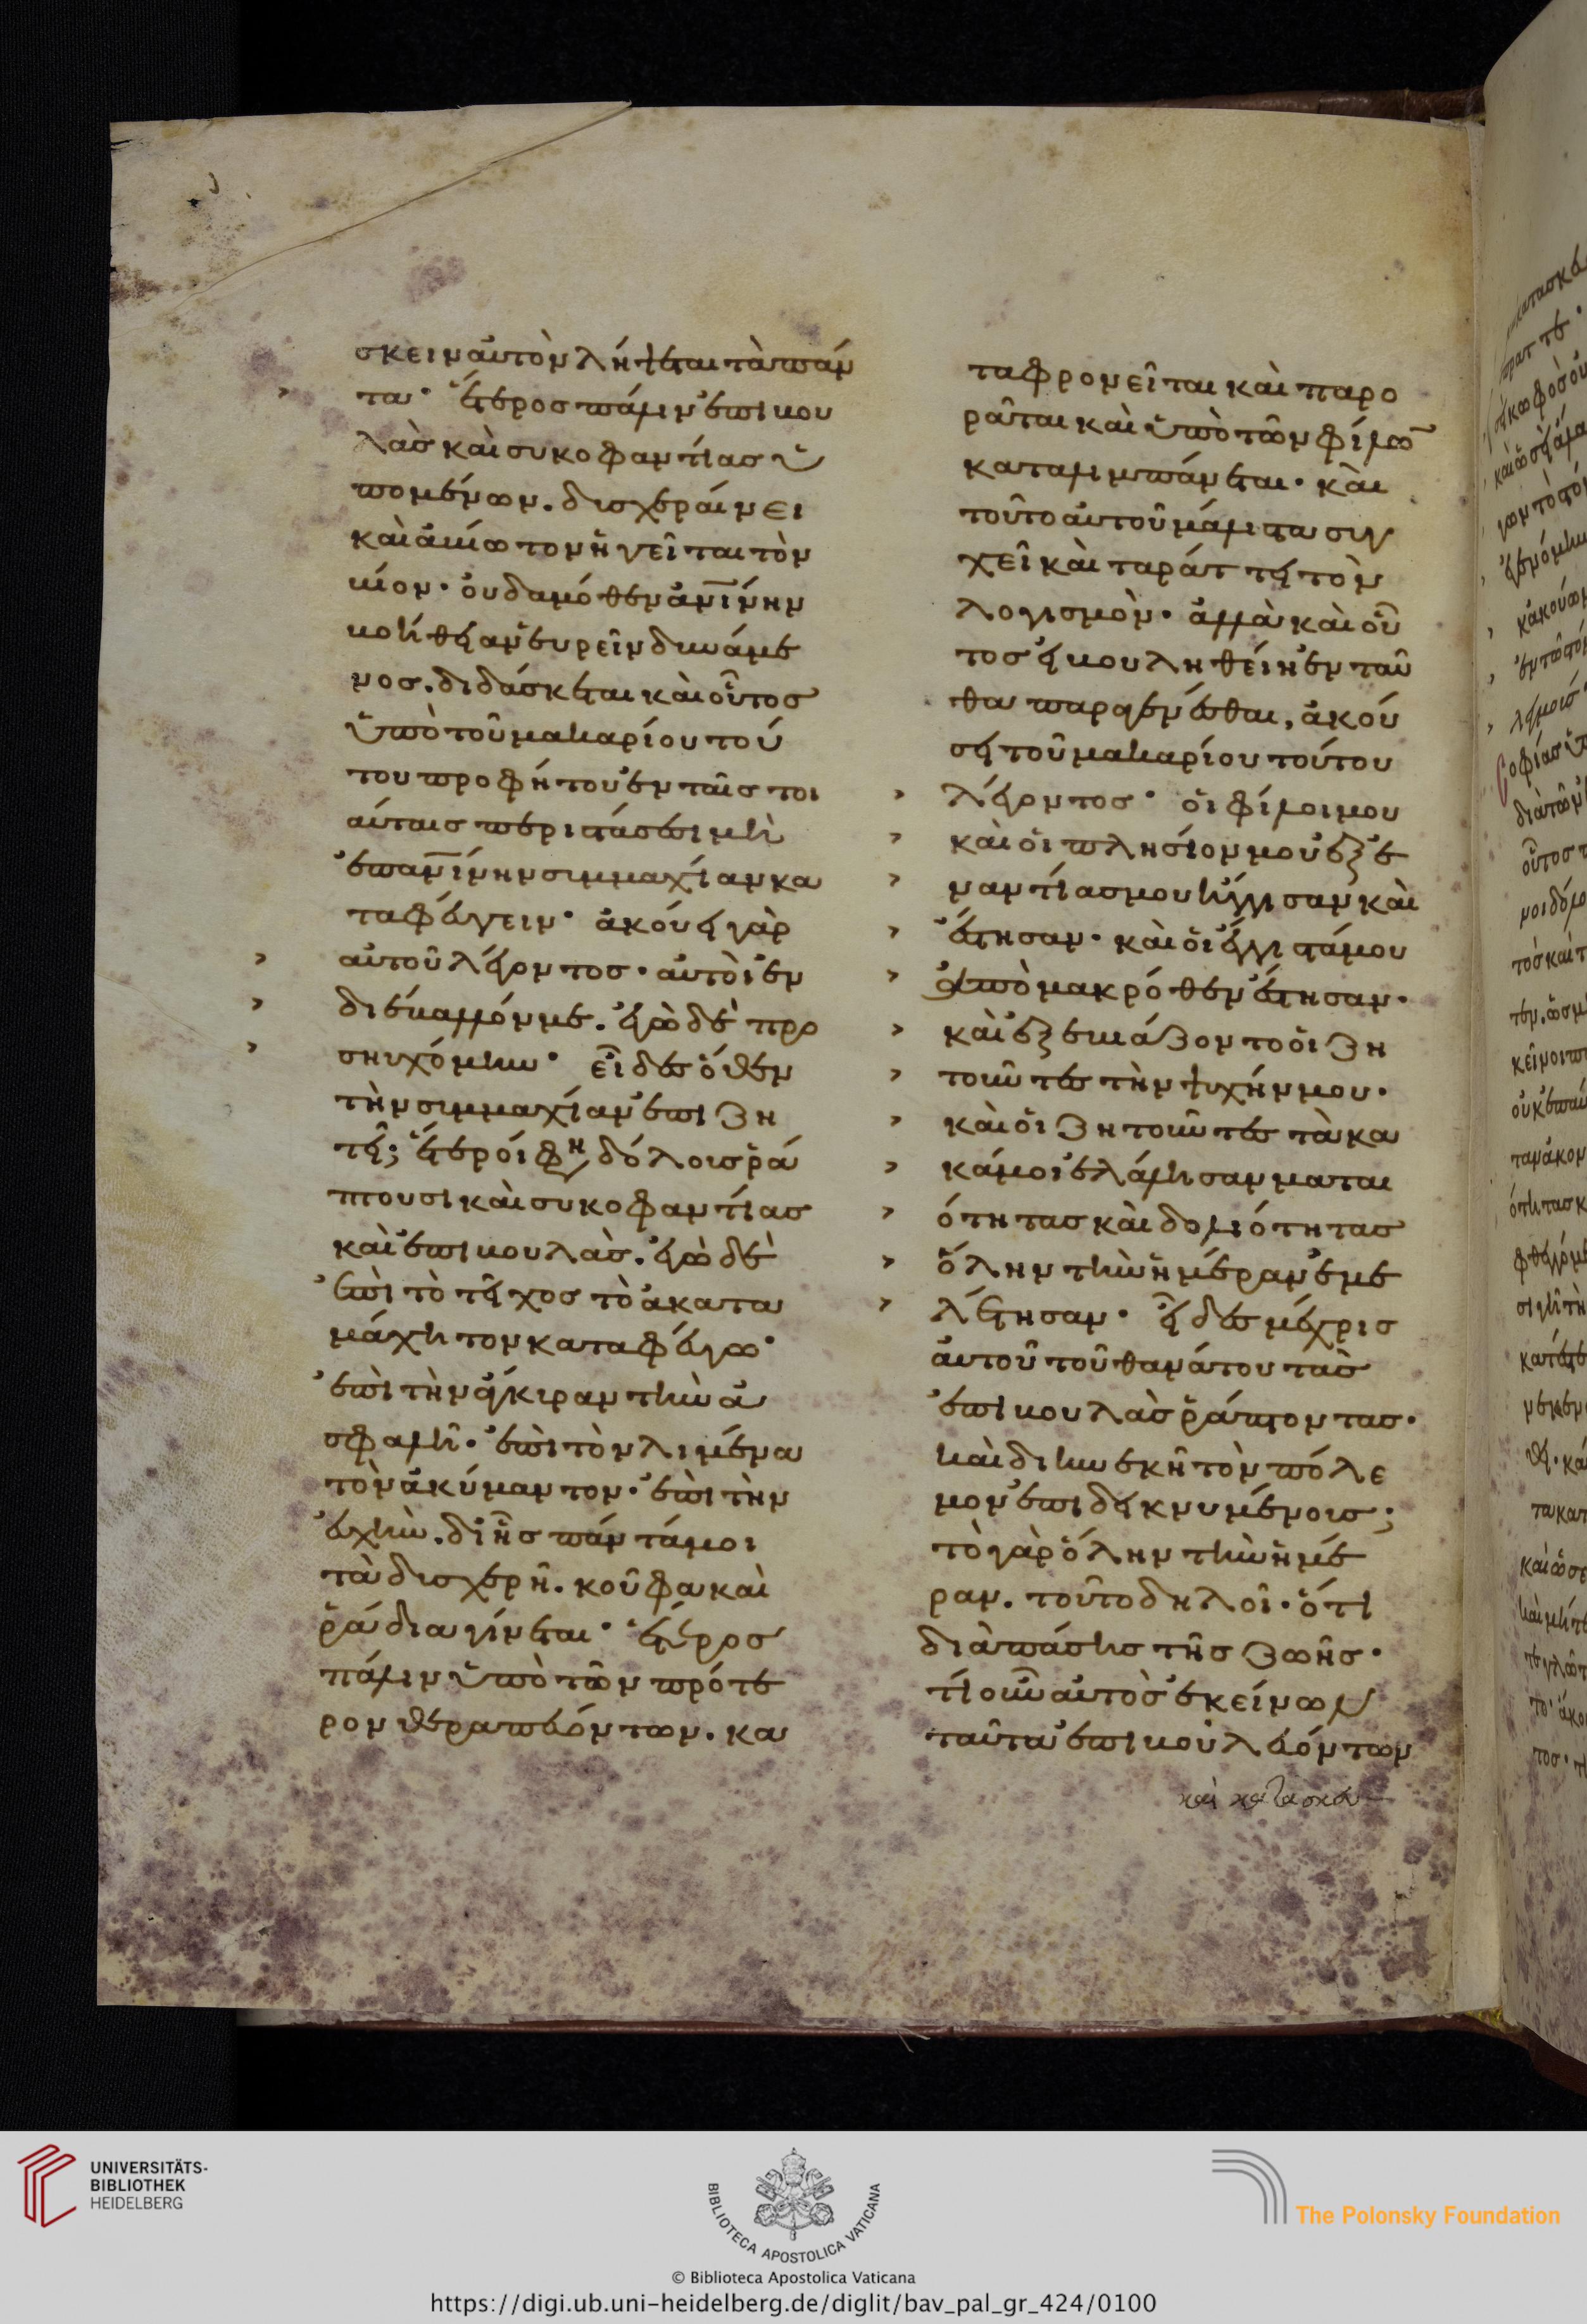 σκειν αὐτὸν λήψεται τὰ πάν
τα· ἕτερος πάλιν ἐπιβου
λὰς καὶ συκοφαντίας ὑ
πομένων. δυσχεραίνει
καὶ ἀβίωτον ἡγεῖται τὸν
βίον· οὐδαμόθεν ἀνίνην
βοήθειαν εὑρεῖν δυνάμε
νος. διδάσκεται καὶ οὗτος
ὑπὸ τοῦ μακαρίου τού
του προφήτου ἐν ταῖς τοι
αύταις περιστάσεσι μὴ
ἐπ ἀνίνην συμμαχίαν κα
ταφεύγειν· ἀκούει γὰρ
αὐτοῦ λέγοντος· αὐτοὶ ἐν
διέβαλλόν με. ἐγὼ δὲ προ
σηυχόμην· εἶδες ὅθεν
τὴν συμμαχίαν ἐπιζη
τεῖ; ἕτεροί φη δόλους ῥά
πτουσι καὶ συκοφαντίας
καὶ ἐπιβουλὰς. ἐγὼ δὲ
ἐπὶ τὸ τεῖχος τὸ ἀκατα
μάχητον καταφεύγω·
ἐπὶ τὴν ἄγκυραν τὴν ἀ
σφαλῆ· ἐπὶ τὸν λιμένα
τὸν ἀκύμαντον· ἐπὶ τὴν
εὐχὴν. δι ἧς πάντά μοι
τὰ δυσχερῆ. κοῦφα καὶ
ῥάδια γίνεται· ἕτερος
πάλιν ὑπὸ τῶν πρότε
ρον θεραπευόντων. κα
ταφρονεῖται καὶ παρο
ρᾶται καὶ ὑπὸ τῶν φίλων
καταλιμπάνεται· καὶ
τοῦτο αὐτοῦ μάλιστα συγ
χεῖ καὶ ταράττει τὸν
λογισμὸν· ἀλλὰ καὶ οὗ
τος εἰ βουληθείη ἐνταῦ
θα παραγενέσθαι, ἀκού
σει τοῦ μακαρίου τούτου
λέγοντος· οἱ φίλοι μου
καὶ οἱ πλησίον μου ἐξ ἐ
ναντίας μου ἤγγισαν καὶ
ἔστησαν· καὶ οἱ ἔγγιστά μου
ἀπὸ μακρόθεν ἔστησαν·
καὶ ἐξεβιάζοντο οἱ ζη
τοῦντες τὴν ψυχήν μου·
καὶ οἱ ζητοῦντες τὰ κα
κά μοι ἐλάλησαν μαται
ότητας καὶ δολιότητας
ὅλην τὴν ἡμέραν ἐμε
λέτησαν· εἶδες μέχρις
αὐτοῦ τοῦ θανάτου τὰς
ἐπιβουλὰς ῥάπτοντας·
καὶ διηνεκῆ τὸν πόλε
μον ἐπιδεικνυμένους;
τὸ γὰρ ὅλην τὴν ἡμέ
ραν. τοῦτο δηλοῖ· ὅτι
διὰ πάσης τῆς ζωῆς·
τί οὖν αὐτὸς ἐκείνων
ταῦτα ἐπιβουλευόντων
καὶ κατασκευ
UNIVERSITÄTS-
BIBLIOTHEK
HEIDELBERG
BIBLIOTECA APOSTOLICA VATICANA
The Polonsky Foundation
© Biblioteca Apostolica Vaticana
https://digi.ub.uni-heidelberg.de/diglit/bav_pal_gr_424/0100